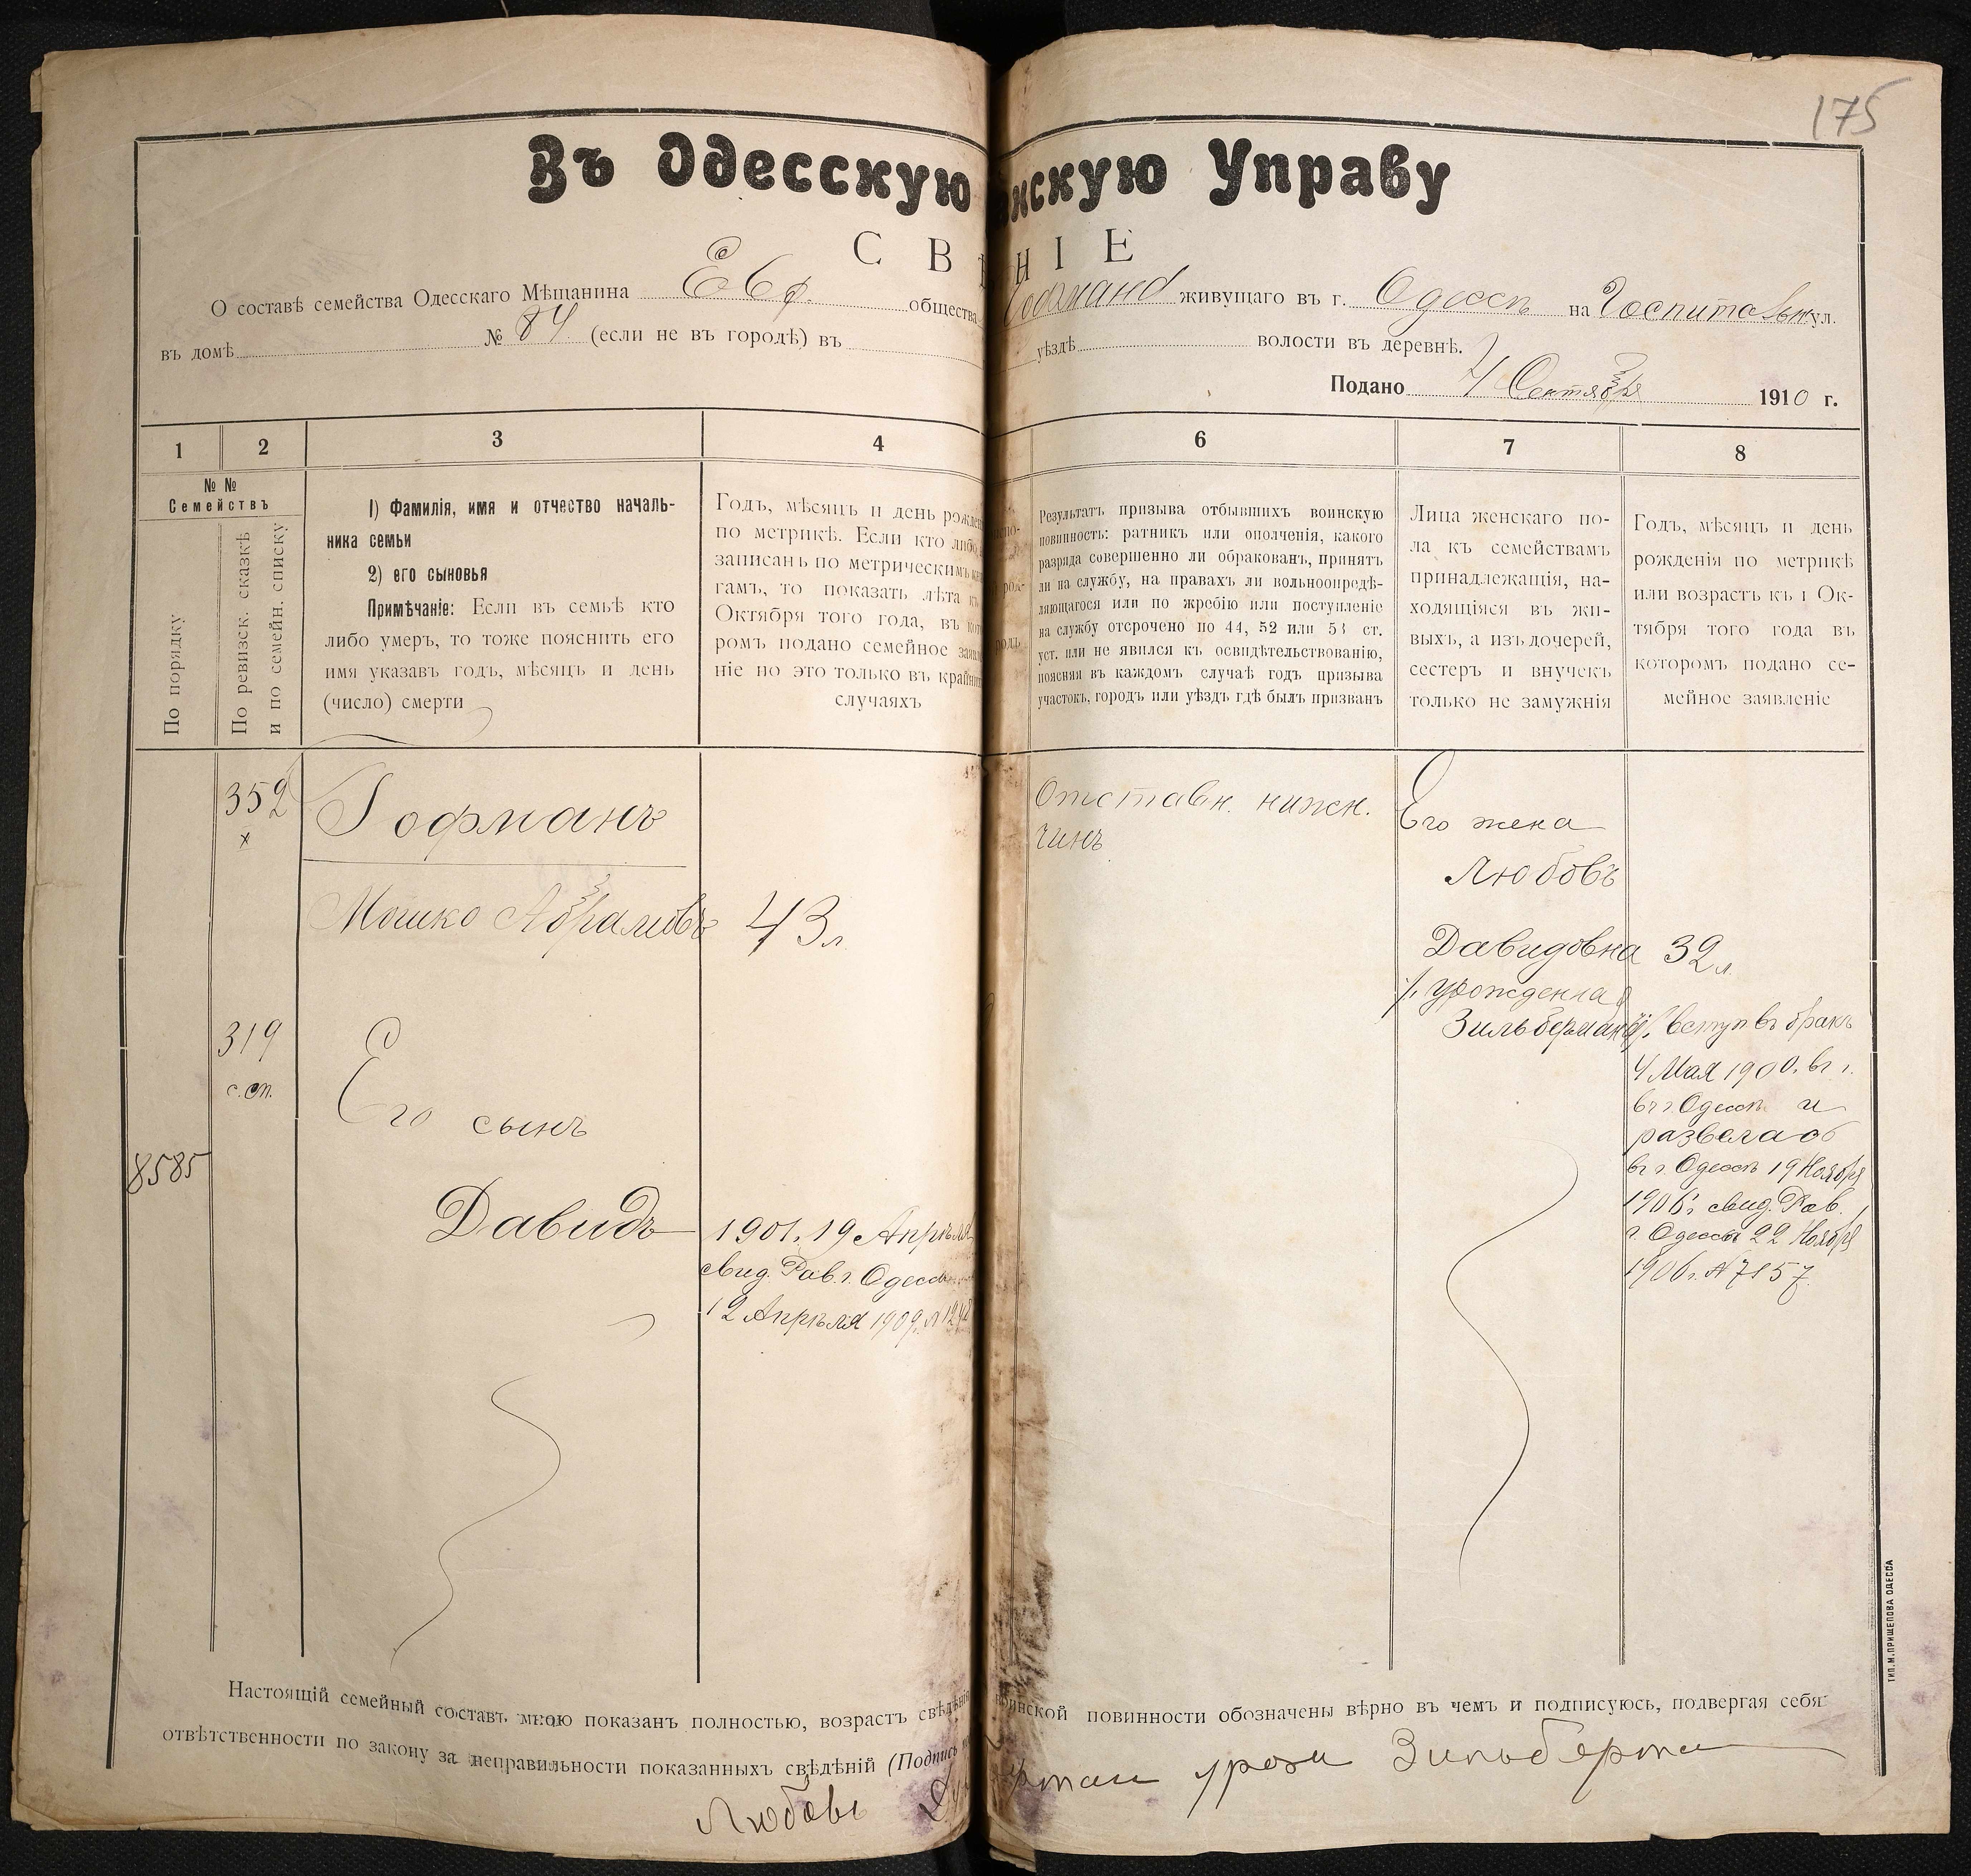 175
Въ Одесскую нскую Управу
С В Н І Е
О составѣ семейства Одесскаго Мѣщанина Евр. общества живущаго въ г. Одессѣ на Госпитальн ул.
въ домѣ № 84 (если не въ городѣ) въ уѣздѣ волости въ деревнѣ.
Подано 4 Сентября 1910 г.
1 2 3 4 6 7 8
№ №
Семействъ
По порядку
По ревизск. сказкѣ
и по семейн. списку
1) Фамилія, имя и отчество началь-
ника семьи
2) его сыновья
Примѣчаніе: Если въ семьѣ кто
либо умеръ, то тоже пояснить его
имя указавъ годъ, мѣсяцъ и день
(число) смерти
Годъ, мѣсяцъ и день рожде
по метрикѣ. Если кто либо
записанъ по метрическимъ
гамъ, то показать лѣта
Октября того года, въ
ромъ подано семейное
ніе но это только въ край
случаяхъ
Результатъ призыва отбывшихъ воинскую
повинность: ратникъ или ополченія, какого
разряда совершенно ли обракованъ, принятъ
ли на службу, на правахъ ли вольноопредѣ-
ляющагося или по жребію или поступленіе
на службу отсрочено по 44, 52 или 53 ст.
уст. или не явился къ освидѣтельствованію,
поясняя въ каждомъ случаѣ годъ призыва
участокъ, городъ или уѣздъ гдѣ былъ призванъ
Лица женскаго по-
ла къ семействамъ
принадлежащія, на-
ходящіяся въ жи-
выхъ, а изъ дочерей,
сестеръ и внучекъ
только не замужнія
Годъ, мѣсяцъ и день
рожденія по метрикѣ
или возрастъ къ 1 Ок-
тября того года въ
которомъ подано се-
мейное заявленіе
352
х
Гофманъ
Мошко Абрамовъ 43 л.
319
с. сп.
Его сынъ
8585
Давидъ
1901. 19 Апрѣля
свид. Рав. г. Одессы
12 Апрѣля 1909.
Отставн. нижн.
чинъ
Его жена
Любовь
Давидовна 32 л.
урожденная
Зильберманъ
вступ въ бракъ
4 Мая 1900.
въ г. Одессѣ и
развелась
въ г. Одессѣ 19 Ноября
1906 г. свид. Рав.
г. Одессы 22 Ноября
1906 г. № 7157.
Настоящій семейный составъ мною показанъ полностью, возрастъ свѣдѣнія воинской повинности обозначены вѣрно въ чемъ и подписуюсь, подвергая себя
отвѣтственности по закону за неправильности показанныхъ свѣдѣній (Подпись
Любовь урож Зильберма
ТИП. М. ПРИЩЕПОВА ОДЕССА